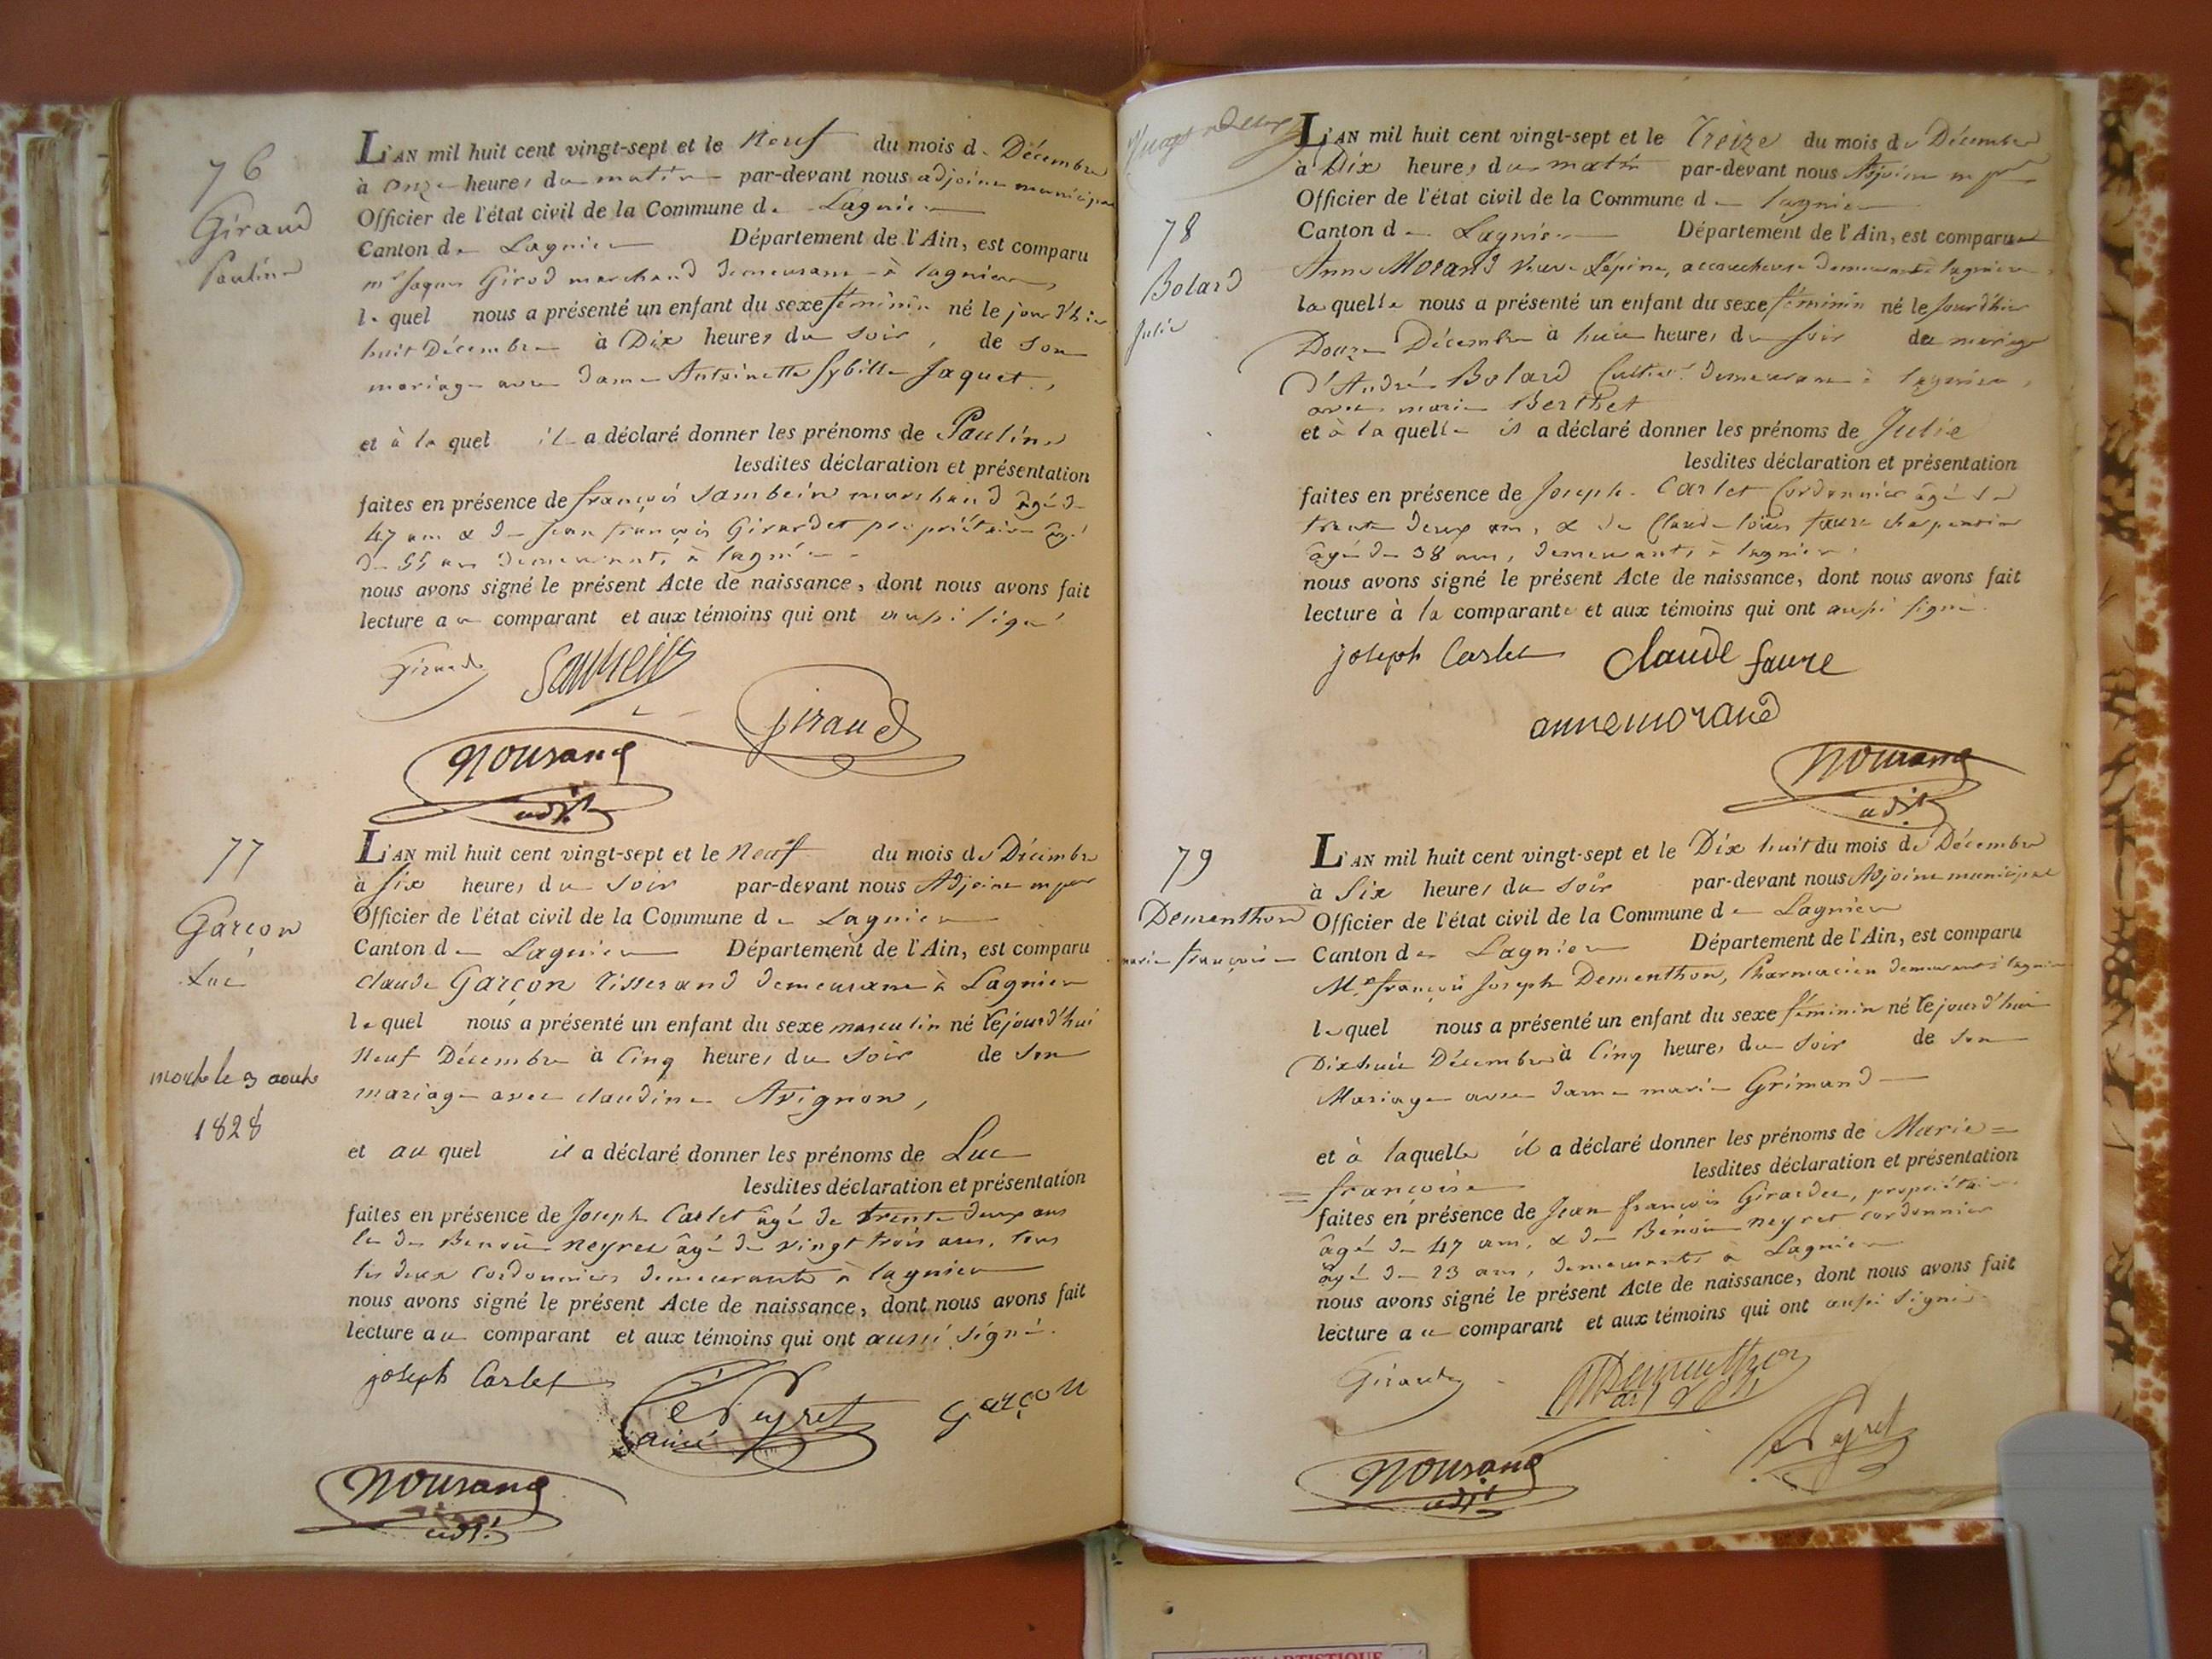 76
Giraud
Pauline
L'AN mil huit cent vingt-sept et le Neuf du mois de Décembre
à onze heures du matin par-devant nous adjoint municipal
Officier de l'état civil de la Commune de Lagnieu
Canton de Lagnieu Département de l'Ain, est comparu
mr Jaques Girod marchand demeurant à lagnieu,
lequel nous a présenté un enfant du sexe féminin né le jour d'hier
huit Décembre à Dix heures du soir, de son
mariage avec dame Antoinette Sybille Jaquet,
et à la quel il a déclaré donner les prénoms de Pauline
lesdites déclaration et présentation
faites en présence de françois Sambein marchand âgé de
47 ans & de Jean françois Girardet propriétaire âgé
de 55 ans demeurants à lagnieu
nous avons signé le présent Acte de naissance, dont nous avons fait
lecture au comparant et aux témoins qui ont aussi signé
Giraud
Nourand
adjt
77
Garçon
Luc
mort le 3 août
1828
L'AN mil huit cent vingt-sept et le Neuf du mois de Décembre
à Six heures du Soir par-devant nous Adjoint mpal
Officier de l'état civil de la Commune de Lagnieu
Canton de Lagnieu Département de l'Ain, est comparu
Claude Garçon Tisserand demeurant à Lagnieu
lequel nous a présenté un enfant du sexe masculin né lejourd'hui
Neuf Décembre à Cinq heures du Soir de son
mariage avec claudine Avignon,
et au quel il a déclaré donner les prénoms de Luc
lesdites déclaration et présentation
faites en présence de Joseph Carlet âgé de trente deux ans
& de Benoit Neyret âgé de vingt trois ans, tous
les deux Cordonniers demeurants à lagnieu
nous avons signé le présent Acte de naissance, dont nous avons fait
lecture au comparant et aux témoins qui ont aussi signé.
joseph Carlet Neyret ainé garçon
Nourand
adjt
78
Bolard
Julie
L'AN mil huit cent vingt-sept et le Treize du mois de Décembre
à Dix heures du matin par-devant nous Adjoint mpal
Officier de l'état civil de la Commune de lagnieu
Canton de Lagnieu Département de l'Ain, est comparue
Anne Morand Veuve Lépine, accoucheuse demeurant à lagnieu,
laquelle nous a présenté un enfant du sexe féminin né le jour d'hier
Douze Décembre à huit heures du Soir de mariage
d'André Bolard Cultivr demeurant à lagnieu,
avec marie Berthet
et à la quelle il a déclaré donner les prénoms de Julie
lesdites déclaration et présentation
faites en présence de Joseph Carlet Cordonnier âgé de
trente deux ans, & de Claude louis faure charpentier
âgé de 38 ans, demeurants à lagnieu,
nous avons signé le présent Acte de naissance, dont nous avons fait
lecture à la comparante et aux témoins qui ont aussi signé.
joseph Carlet Claude faure
anne morand
Nourand
adjt
79
Dementhon
marie françoise
L'AN mil huit cent vingt-sept et le Dix huit du mois de Décembre
à Six heures du Soir par-devant nous Adjoint municipal
Officier de l'état civil de la Commune de Lagnieu
Canton de Lagnieu Département de l'Ain, est comparu
Mr françois Joseph Dementhon, Pharmacien demeurant à lagnieu
lequel nous a présenté un enfant du sexe féminin né lejourd'hui
Dix huit Décembre à Cinq heures du Soir de son
Mariage avec dame marie Grimand
et à laquelle il a déclaré donner les prénoms de Marie=
=françoise lesdites déclaration et présentation
faites en présence de Jean françois Girardet, propriétaire
âgé de 47 ans, & de Benoit Neyret cordonnier
âgé de 23 ans, demeurants à Lagnieu
nous avons signé le présent Acte de naissance, dont nous avons fait
lecture au comparant et aux témoins qui ont aussi signé.
Girardet Dementhon
Neyret
Nourand
adjt